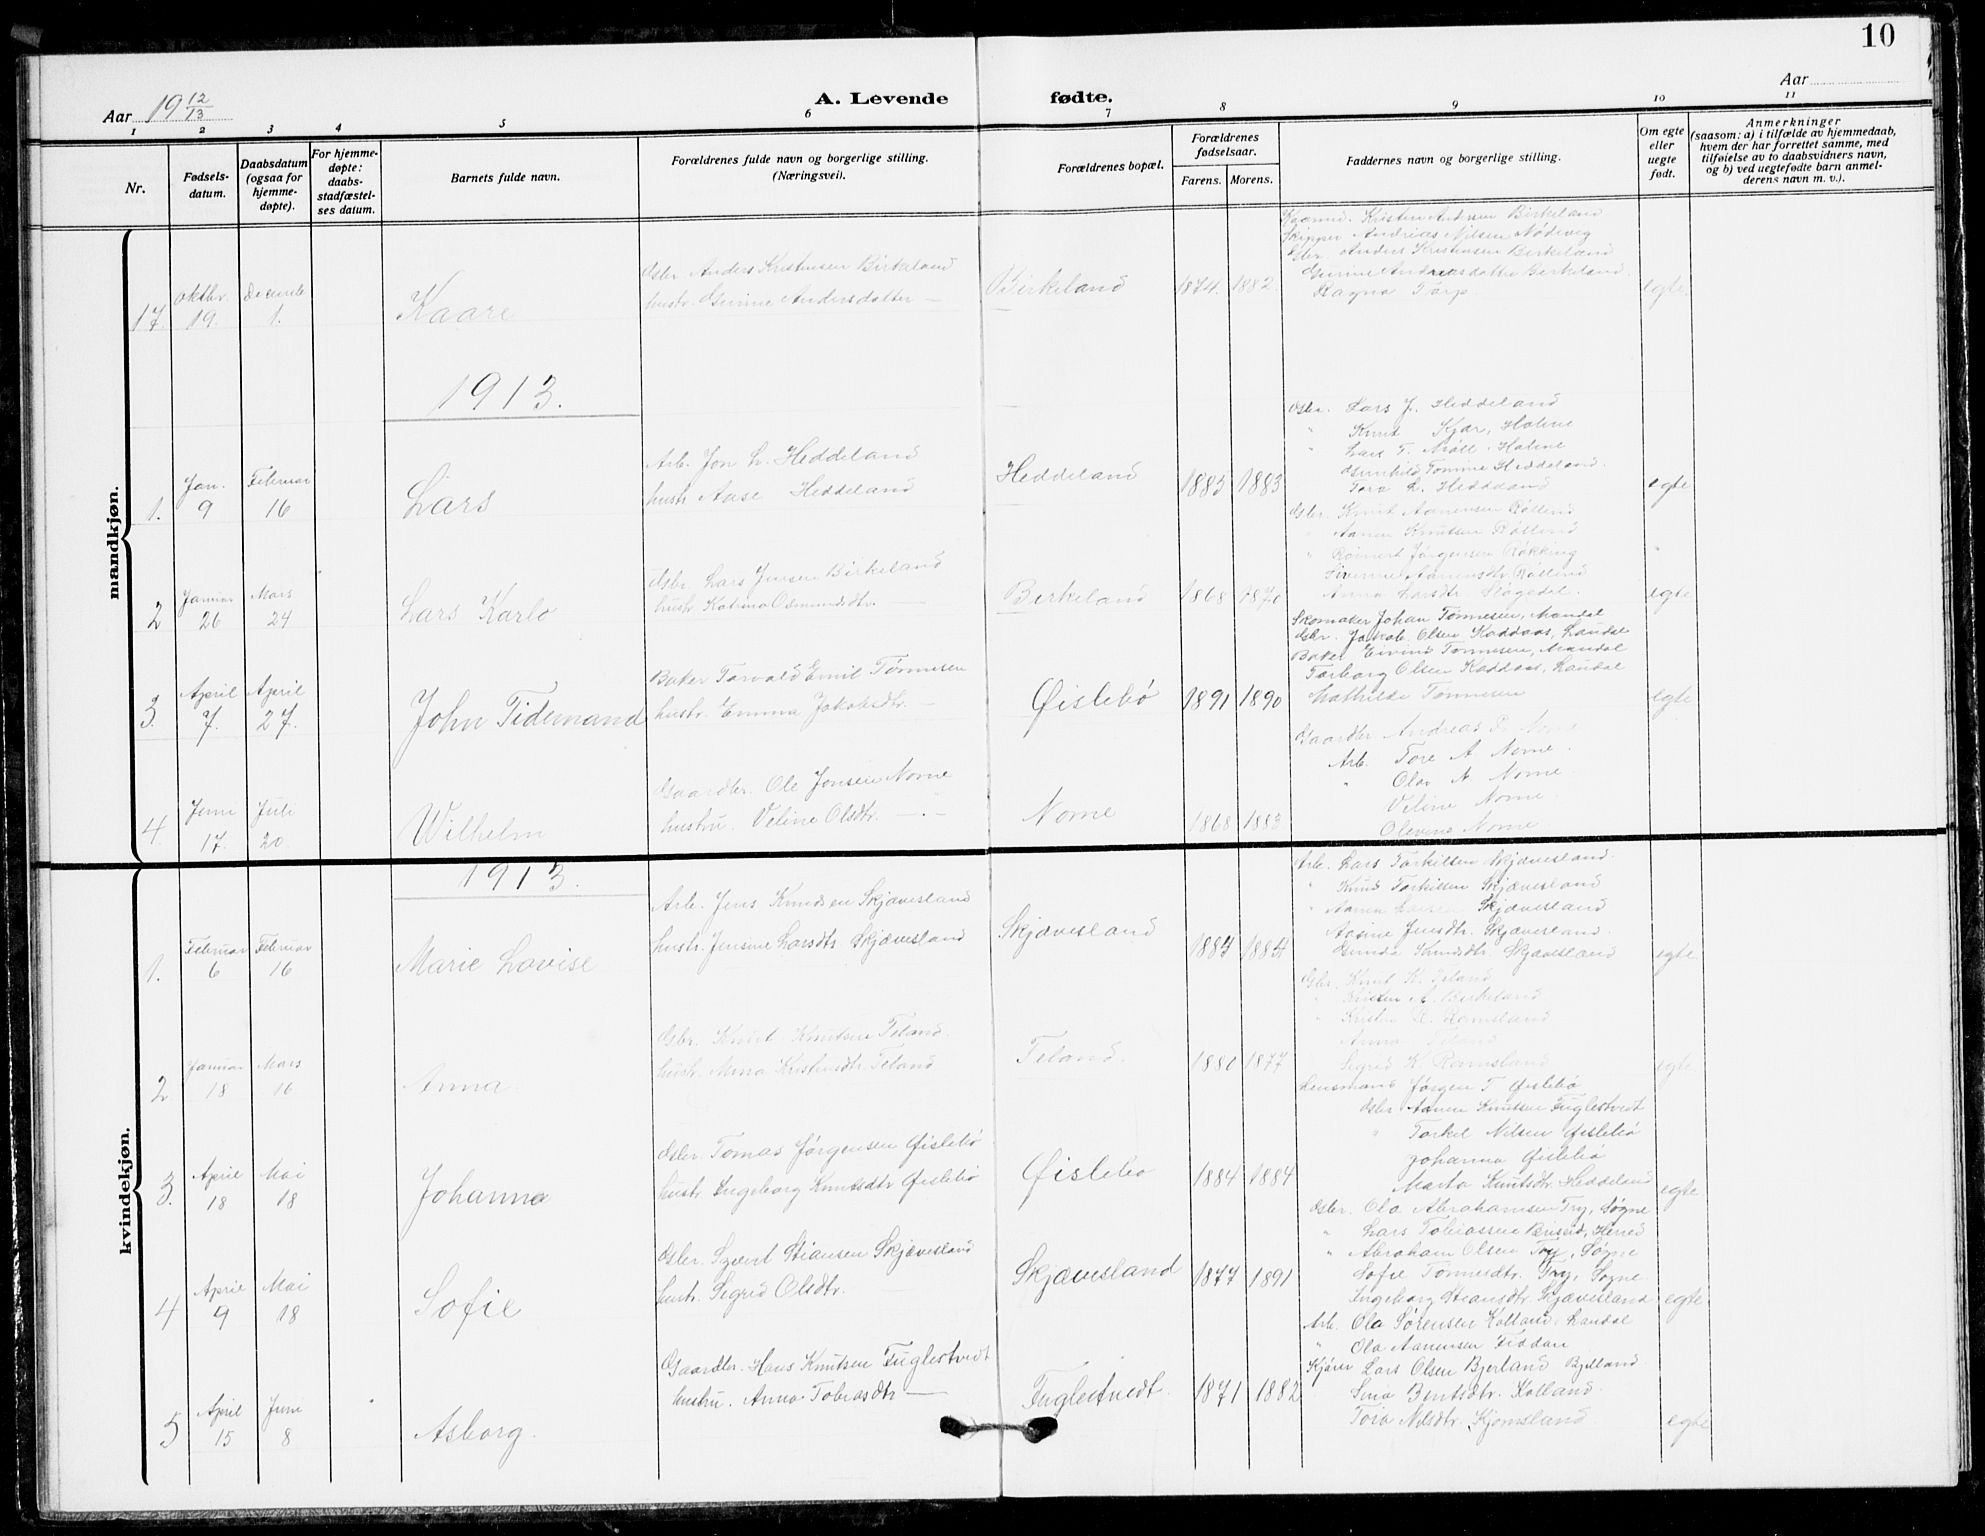 10
Aar 19 12/13
A. Levende fødte.
Aar
1 2 3 4 5 6 7 8 9 10 11
Nr.
Fødsels-
datum.
Daabsdatum
(ogsaa for
hjemme-
døpte).
For hjemme-
døpte:
daabs-
stadfæstel-
ses datum.
Barnets fulde navn.
Forældrenes fulde navn og borgerlige stilling.
(Næringsvei).
Forældrenes bopæl.
Forældrenes
fødselsaar.
Farens. Morens.
Faddernes navn og borgerlige stilling.
Om egte
eller
uegte
født.
Anmerkninger
(saasom: a) i tilfælde av hjemmedaab,
hvem der har forrettet samme, med
tilføielse av to daabsvidners navn,
og b) ved uegtefødte barn anmel-
derens navn m. v.).
mandkjøn.
17. Oktbr. 19. Decembr 1. Kaare
Gsbr. Anders Kristensen Birkeland
hustr. Gurine Andersdatter —
Birkeland 1874. 1882.
Kristen Andersen Birkeland
Skipper Andreas Nilsen Nødevig
Gsbr. Anders Kristensen Birkeland
Gurine Andreasdatter Birkeland.
Ragna Torp
egte
1913.
1. Jan. 9 Februar 16 Lars
Arb. Jon L. Heddeland
hustr. Aase Heddeland
Heddeland 1883 1883
Gsbr. Lars J. Heddeland
" Knud Kjær, Holme
" Lars T. Møll, Holme
Gunhild Tomine Heddeland.
Tora L. Heddeland
egte
2 Januar 26 Mars 24 Lars Karlo
Gsbr. Lars Jensen Birkeland
hustr. Katrina Osmundsdtr. —
Birkeland 1868 1870
Gsbr. Knut Aanensen Røllend
" Aanen Knutsen Røllend
" Reinert Jørgensen Røkking
Aanensdtr. Røllend
Anna Larsdtr. Slogedal.
egte
3. April 7. April 27. John Tidemand
Baker Torvald Emil Tønnesen
hustr. Emma Jakobsdtr. —
Øislebø 1891 1890
Skomaker Johan Tønnesen, Mandal
Gsbr. Jakob Olsen Kaddaas, Laudal
Baker Eivind Tønnesen, Mandal
Torborg Olsen Kaddaas, Laudal
Mathilde Tønnesen
egte
4. Juni 17. Juli 20. Wilhelm
Gaardbr. Ole Jonsen Nome
hustru. Veline Olsdtr. —.—
Nome 1868 1883
Gaardbr. Andreas P. Nome
Arb. Tore A Nome.
" Olav A. Nome.
Veline Nome.
Olevine Nome
kvindekjøn.
1913.
1. Februar 6 Februar 16 Marie Lovise
Arb. Jens Knudsen Skjævesland
hustr. Jensine Larsdtr Skjævesland
Skjævesland 1884 1884
Arb. Lars Torkilsen Skjævesland.
" Knud Torkilsen Skjævesland
" Aanen Larsen Skjævesland
Aasine Jensdtr. Skjævesland.
Gunda Knudsdtr. Skjævesland
egte
2 Januar 18 Mars 16 Anna
Gsbr. Knut Knutsen Teland.
hustr. Anna Kristensdtr. Teland
Teland. 1881 1877
Gsbr. Knut K. Teland
" Kristen A. Birkeland
" Kristen K. Ramsland
Anna Teland
Sigrid K. Ramsland
egte
3. April 18 Mai 18 Johanna
Gsbr. Tomas Jørgensen Øislebø
hustr. Ingeborg Knutsdtr Øislebø
Øislebø 1884 1884
Lensmand Jørgen T. Øislebø
Gsbr Aanen Knutsen Fuglestvedt
" Torkel Nilsen Øislebø
Johanna Øislebø
Marta Knutsdtr. Heddeland
egte
4 April 9 Mai 18 Sofie
Gsbr. Syvert Stiansen Skjævesland
hustr. Sigrid Olsdtr. —
Skjævesland 1877 1891
Gsbr. Ola Abrahamsen Try, Søgne
" Lars Tobiassen Bruseid, Herred
" Abraham Olsen Try, Søgne
Sofie Tønnesdtr. Try, Søgne
Ingeborg Steansdtr. Skjævesland
egte
5 April 15 Juni 8 Asborg.
Gaardbr. Hans Knutsen Fuglestvedt
hustru. Anna Tobiasdtr —
Fuglestvedt. 1871 1882
Arb. Ola Sørensen Kolland, Laudal
" Ola Aanensen Fiddan
Kjører Lars Olsen Bjerland Bjelland
Sina Berntsdtr. Kolland.
Tora Nilsdtr. Kjomsland
egte